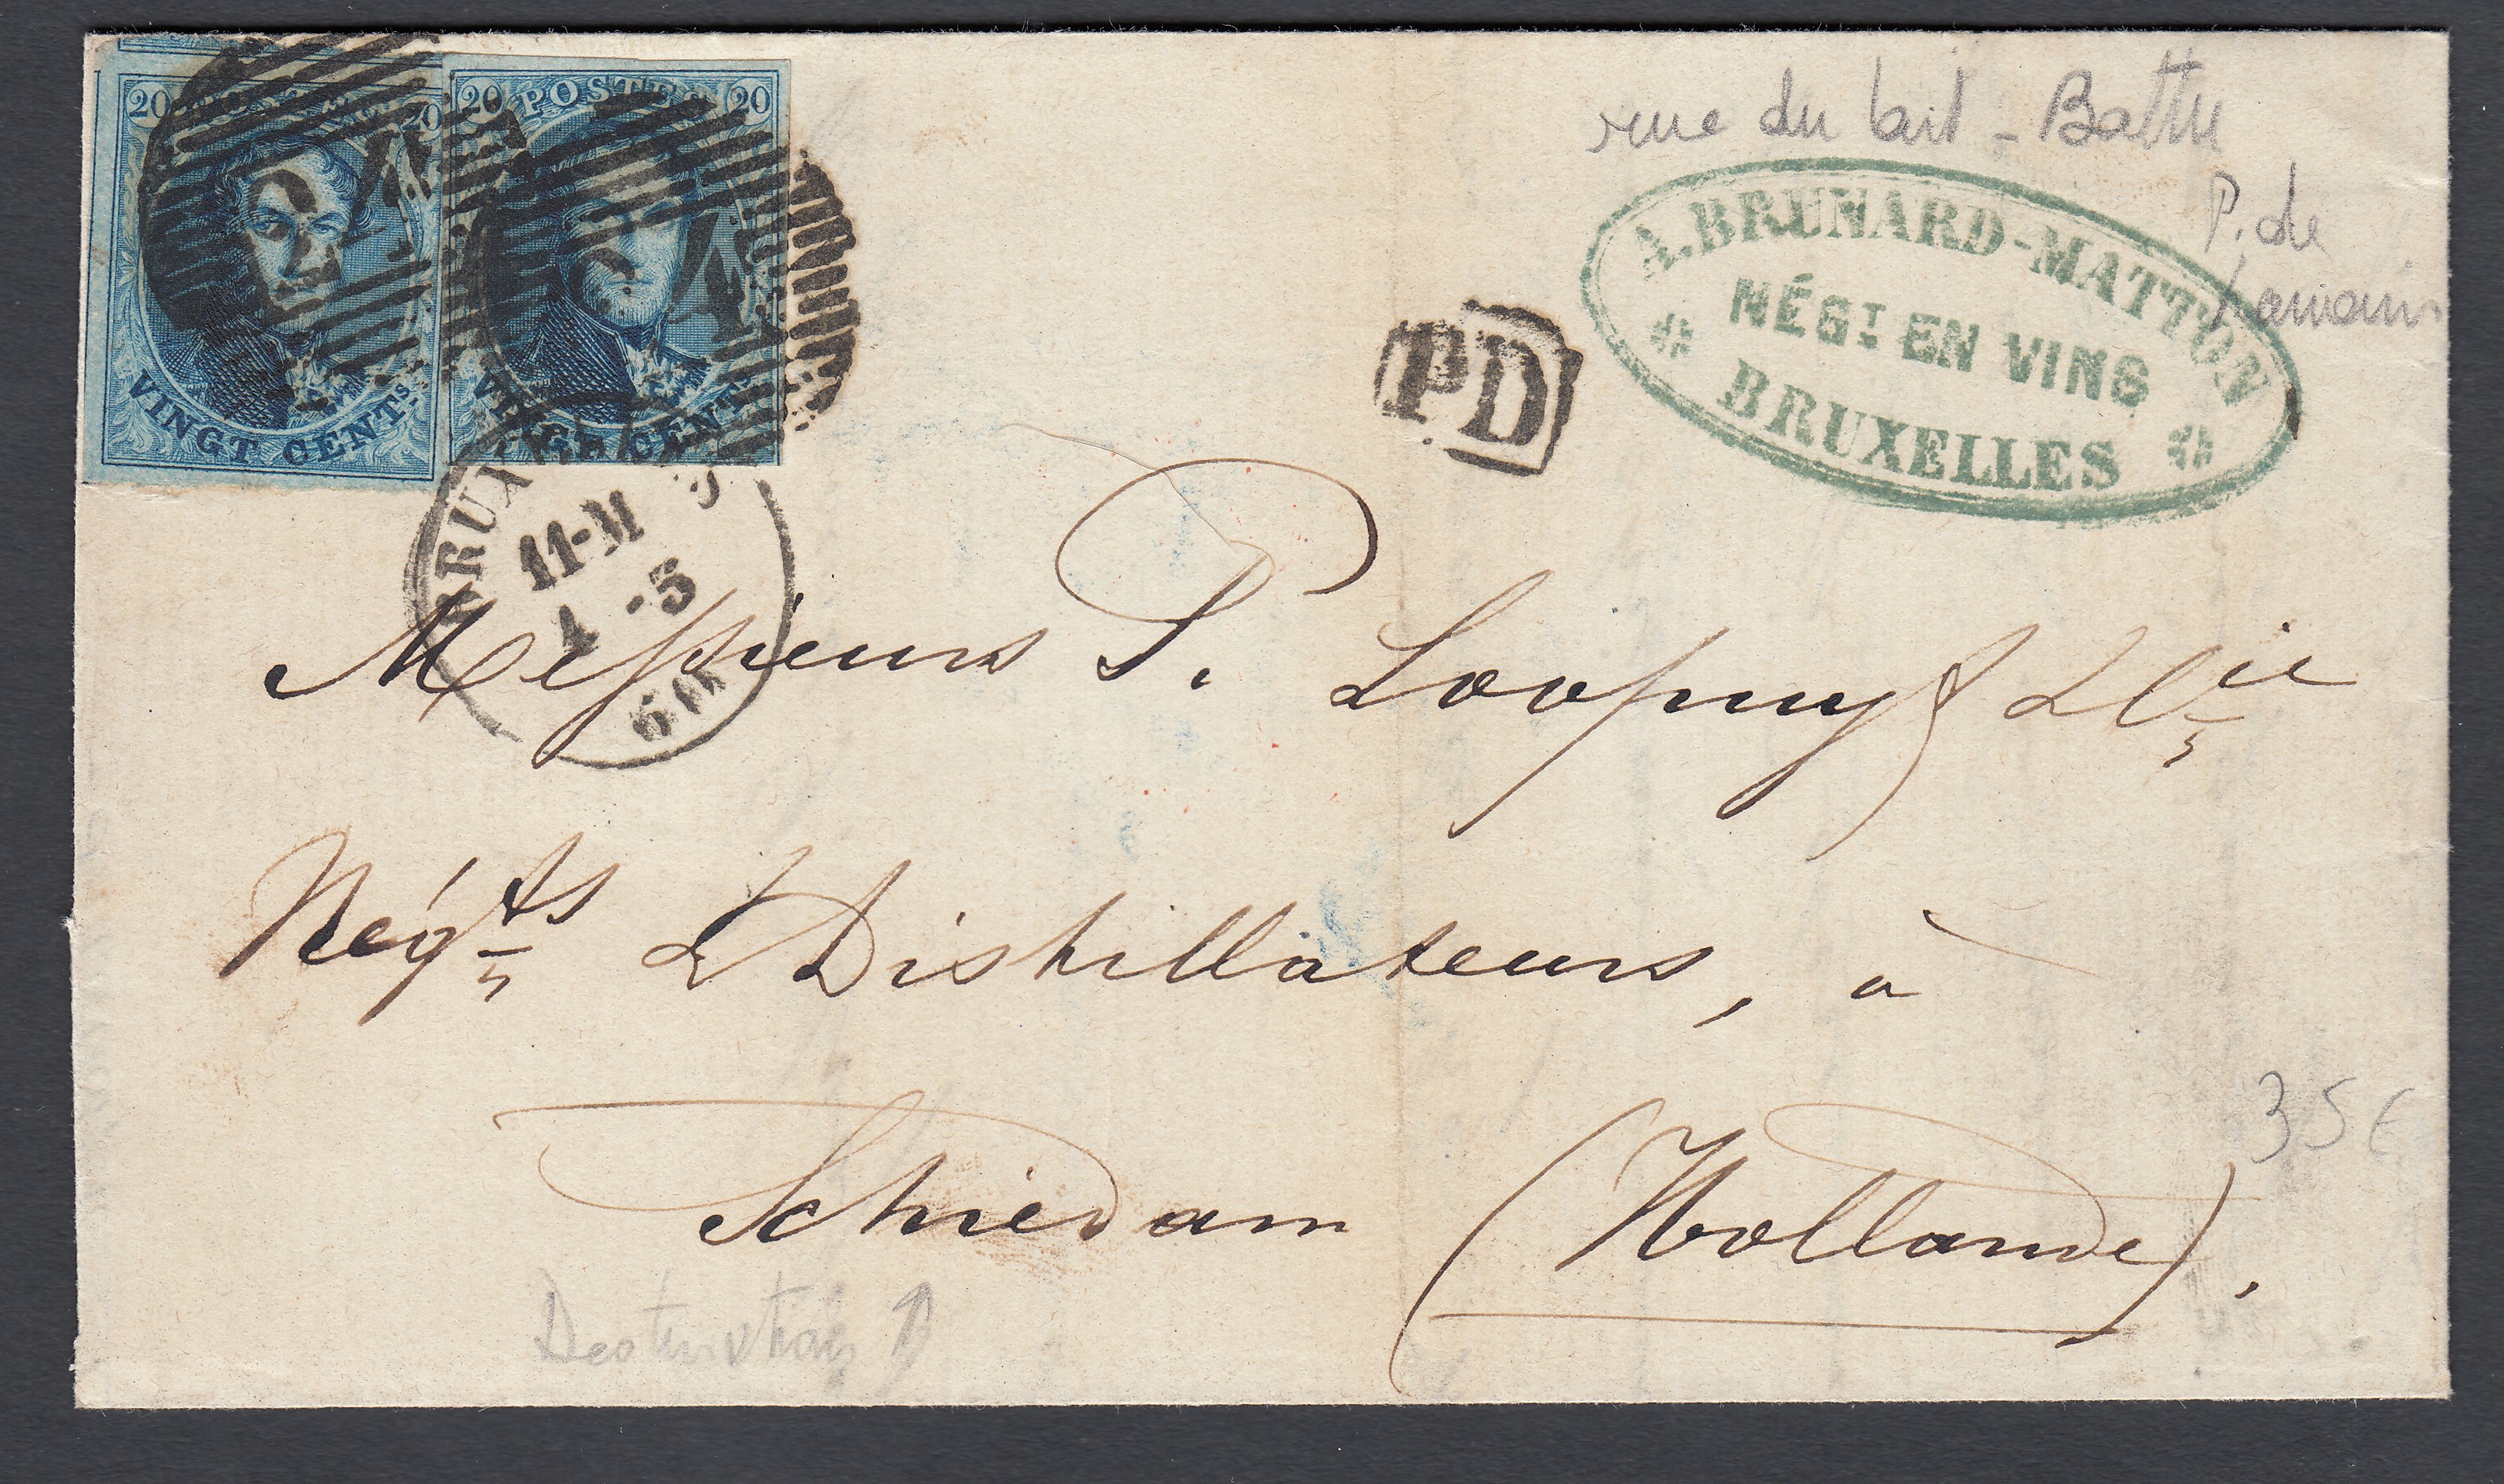 20 20
VINGT CENTs
24
20 POSTES 20
VINGT CENTs
24
rue du lait - Battu
P. de
A. BRUNARD-MATTON
NÉGT EN VINS
BRUXELLES
PD
BRUX
11-M
1 -5
Messieurs P. Loopuyt & Cie
Négts & Distillateurs, à
Schiedam (Hollande).
35 €
Destination